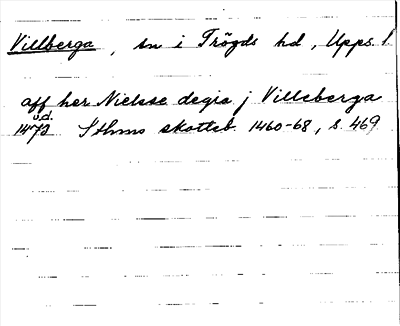 Villberga, sn i Trögds hd, Upps. l.
aff her Nielsse degia j Villeberga
u.d.
1473 Sthms skotteb. 1460-68, s. 469